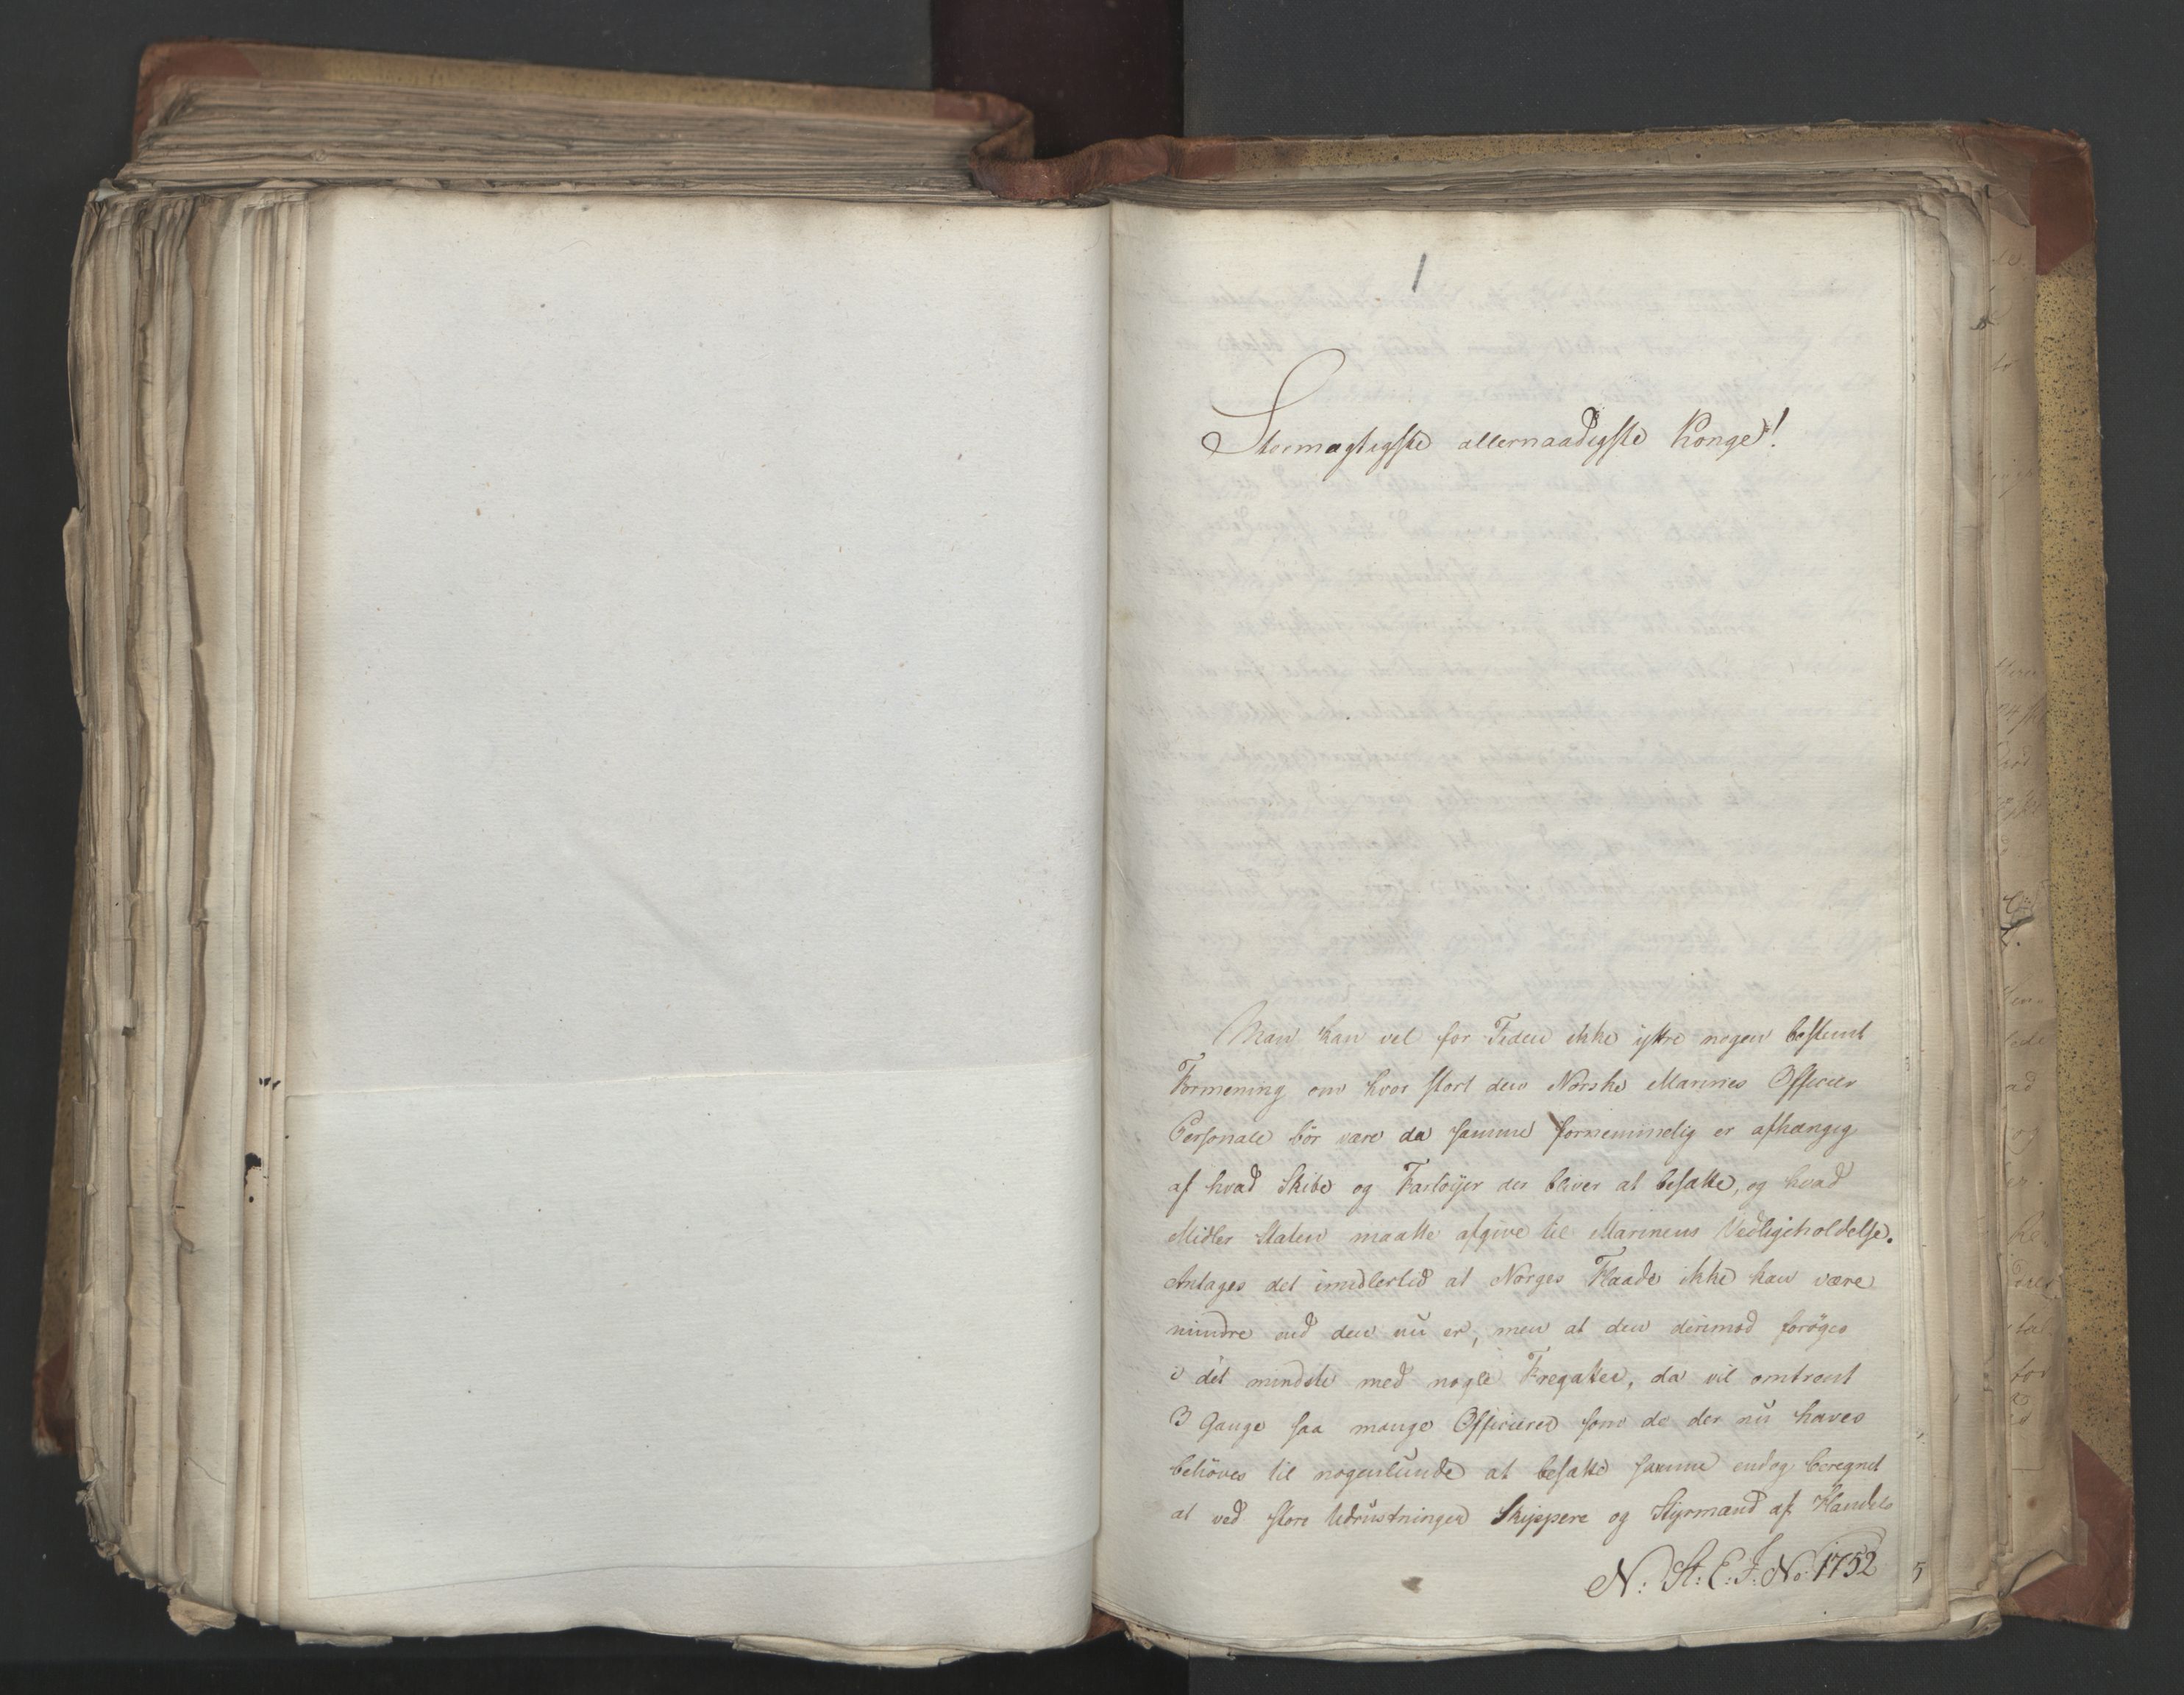 1
Stormægtigste allernaadigste Konge!
Man kan vel for Tiden ikke yttre nogen bestemt
Formening om hvor stort den Norske Marines Officier
Personale bör være da samme fornemmelig er afhængig
af hvad Skibe og Fartöyer der bliver at besætte, og hvad
Midler Staten maatte afgive til Marinens Vedligeholdelse.
Antages det imidlertid at Norges Flaade ikke kan være
mindre end den nu er, men at den derimod foröges
i det mindste med nogle Fregatter, da vil omtrent
3 Gange saa mange Officierer som de der nu haves
behöves til nogenlunde at besætte samme endog beregnet
at ved store Udrustninger Skippere og Styrmænd af Handels
N: St: E: J: No: 1752